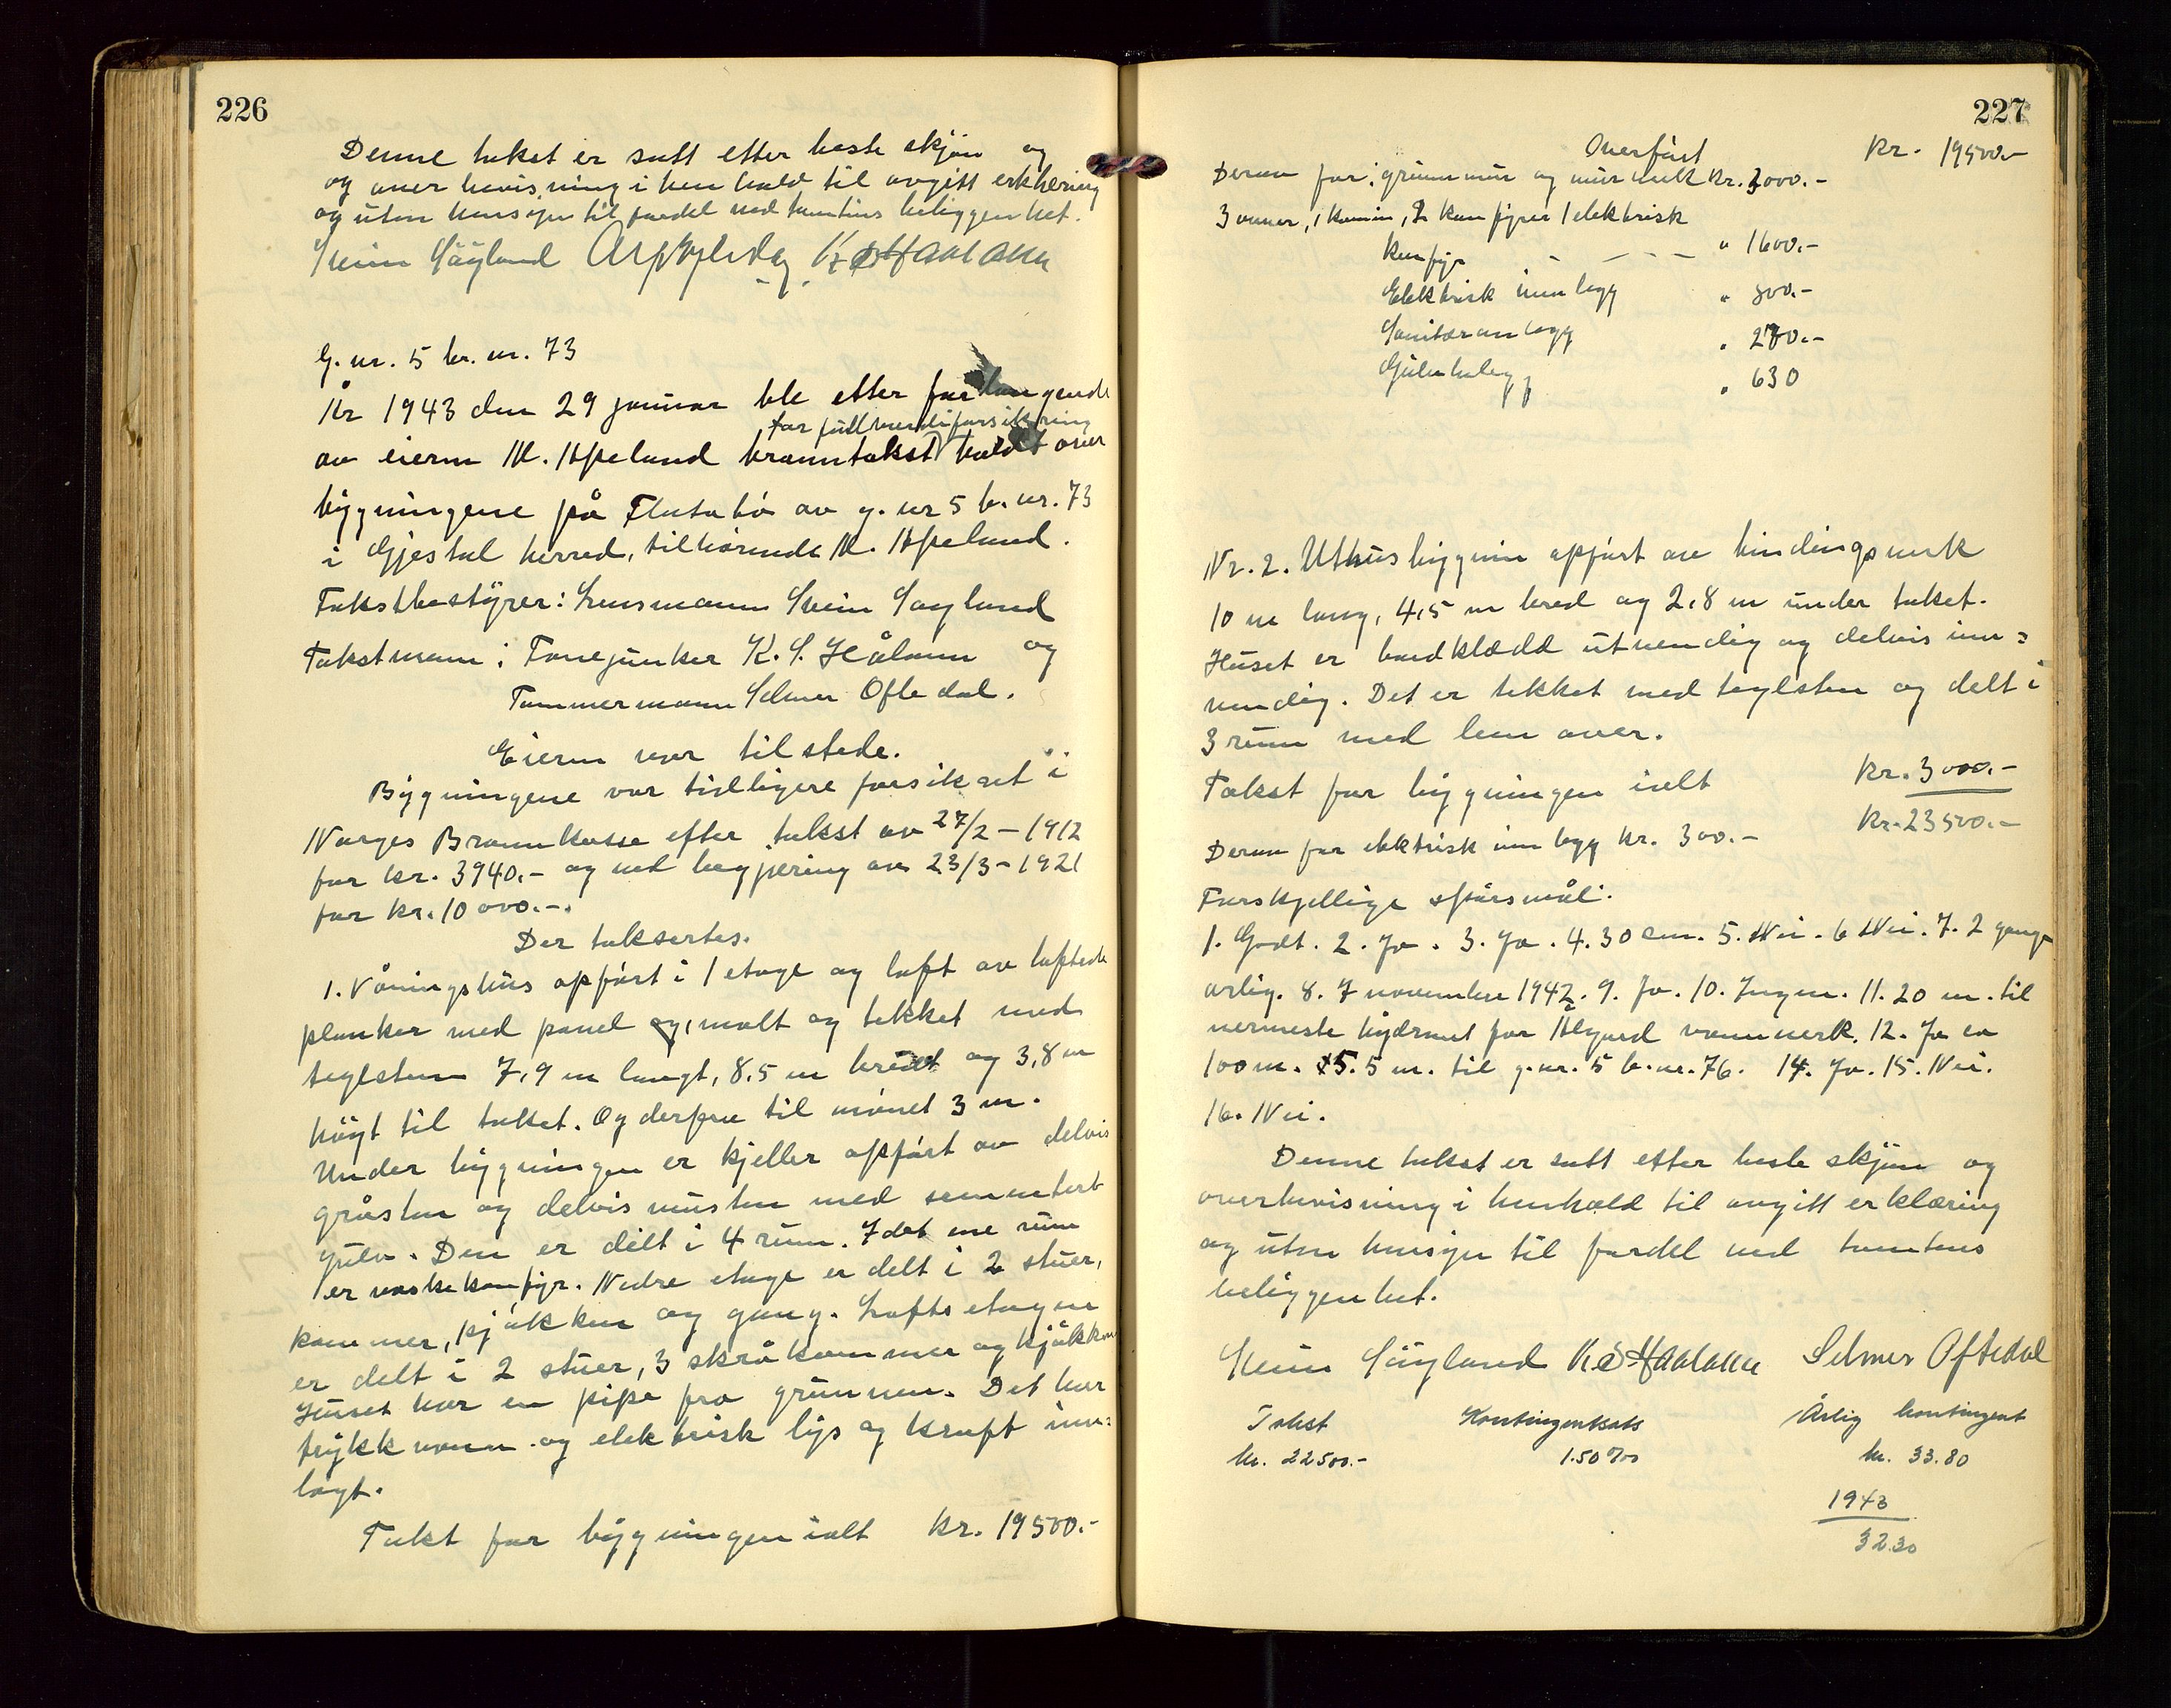 226
Denne takst er satt etter beste skjøn og
og overbevisning i henhold til avgitt erklæring
og uten hensyn til fordel ved tomtens beliggenhet.
Svein Søyland K. S. Haaland
G. nr. 5 br. nr. 73
År 1943 den 29 januar ble etter forlangende
for fullverdiforsikring
av eieren M. Apeland branntakst holdt over
bygningene på Flutabø av g. nr 5 b. nr. 73
i Gjestal herred, tilhørende M. Apeland.
Takstbestyrer: Lensmann Svein Søyland
Takstmenn: Fanejunker K. S. Håland og
Tømmermann Selmer Oftedal.
Eieren var tilstede.
Bygningene var tidligere forsikret i
Norges Brannkasse efter takst av 27/2 - 1912
for kr. 3940.- og ved begjæring av 23/3 - 1921
for kr. 10 000.-.
Der taksertes.
1. Våningshus opført i 1 etage og loft av laftede
planker med panel og, malt og tekket med
teglsten 7,9 m langt, 8,5 m bredt og 3,8 m
høgt til taket. Og derfra til mønet 3 m.
Under bygningen er kjeller opført av delvis
gråsten og delvis mursten med sementert
gulv. Den er delt i 4 rum. I det ene rum
er vaskekomfyr. Nedre etage er delt i 2 stuer,
kammer, kjøkken og gang. Loftsetagen
er delt i 2 stuer, 3 skråkammer og kjøkken
Huset har en pipe fra grunnen. Det har
trykkvann og elektrisk lys og kraft inn=
lagt.
Takt for bygningen ialt kr. 19500.-
227
Overført kr. 19500.-
Derav for: grunnmur og murverk kr. 3000.-
3 ovner, 1 kamin, 2 komfyrer 1 elektrisk
komfyr - - - - " 1600.-
Elektrisk innlegg " 800.-
Sanitæranlegg " 270.-
Gulvbelegg " 630
Nr. 2. Uthusbygnin opført av bindingsverk
10 m lang, 4,5 m bred og 2,8 m under taket.
Huset er bordklædd utvendig og delvis inn=
vendig. Det er tekket med teglsten og delt i
3 rum med lem over.
Takst for bygningen ialt kr. 3000.-
kr. 23500.-
Derav for elektrisk innlegg kr. 300.-
Forskjellige spørsmål:
1. Godt. 2. Ja. 3. Ja. 4. 30 cm. 5. Nei. 6 Nei. 7. 2 gange
årlig. 8. 7 november 1942. 9. Ja. 10. Ingen. 11. 20 m. til
nermeste hydrant for Ålgård vannverk. 12. Ja ca
100 m. 5. 5 m. til g. nr. 5 b. nr. 76. 14. Ja. 15. Nei.
16. Nei.
Denne takst er satt etter beste skjøn og
overbevisning i henhold til avgitt erklæring
og uten hensyn til fordel ved tomtens
beliggenhet.
Svein Søyland K. S. Haaland Selmer Oftedal
Takst Kontingentsats Årlig kontingent
kr. 22500.- 1.50 ‰ kr. 33.80
1943
32.30